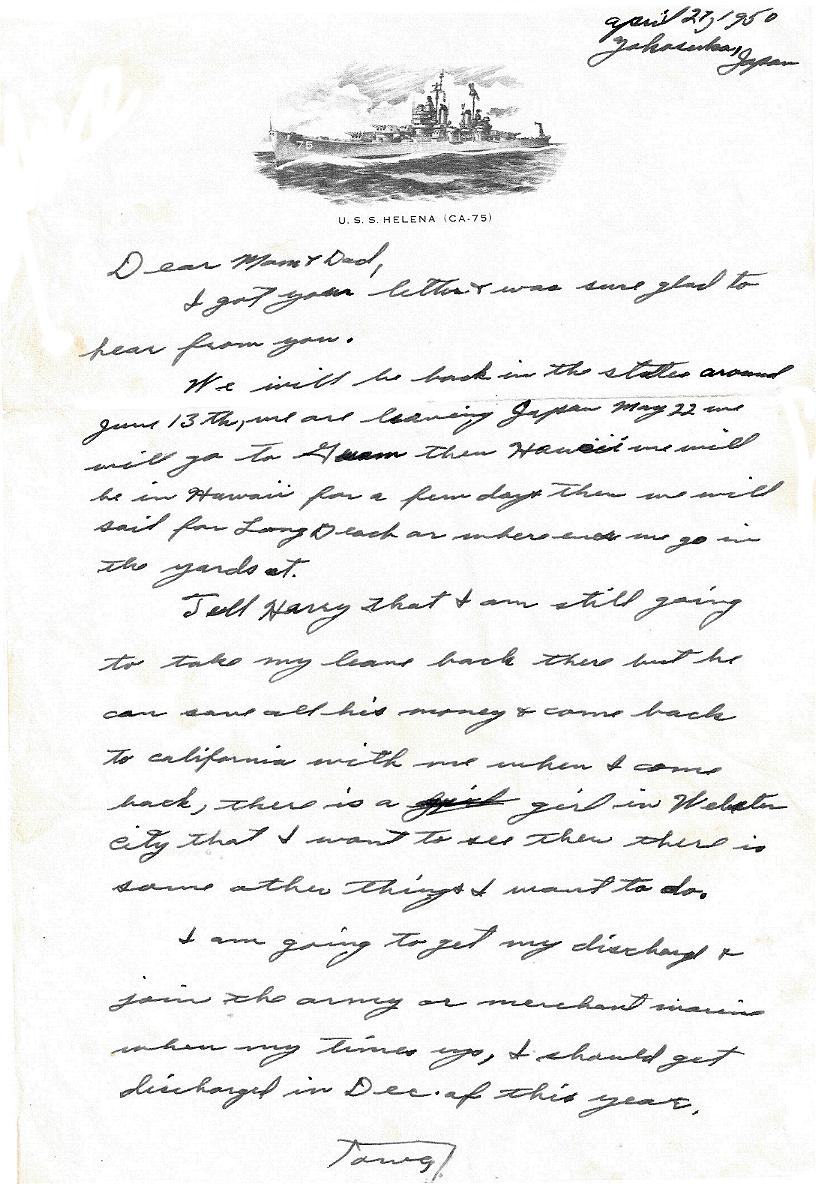 April 27, 1950
Yokosuka,
Japan
75
U. S. S. HELENA (CA-75)
Dear Mom & Dad,
I got your letter & was sure glad to
hear from you.
We will be back in the states around
June 13th, we are leaving Japan May 22 we
will go to Guam then Hawaii we will
be in Hawaii for a few days then we will
sail for Long Beach or where ever we go in
the yards at.
Tell Harry that I am still going
to take my leave back there but he
can save all his money & come back
to california with me when I come
back, there is a girl girl in Webster
city that I want to see then there is
some other things I want to do.
I am going to get my discharge &
join the army or merchant marine
when my times up, I should get
discharged in Dec. of this year.